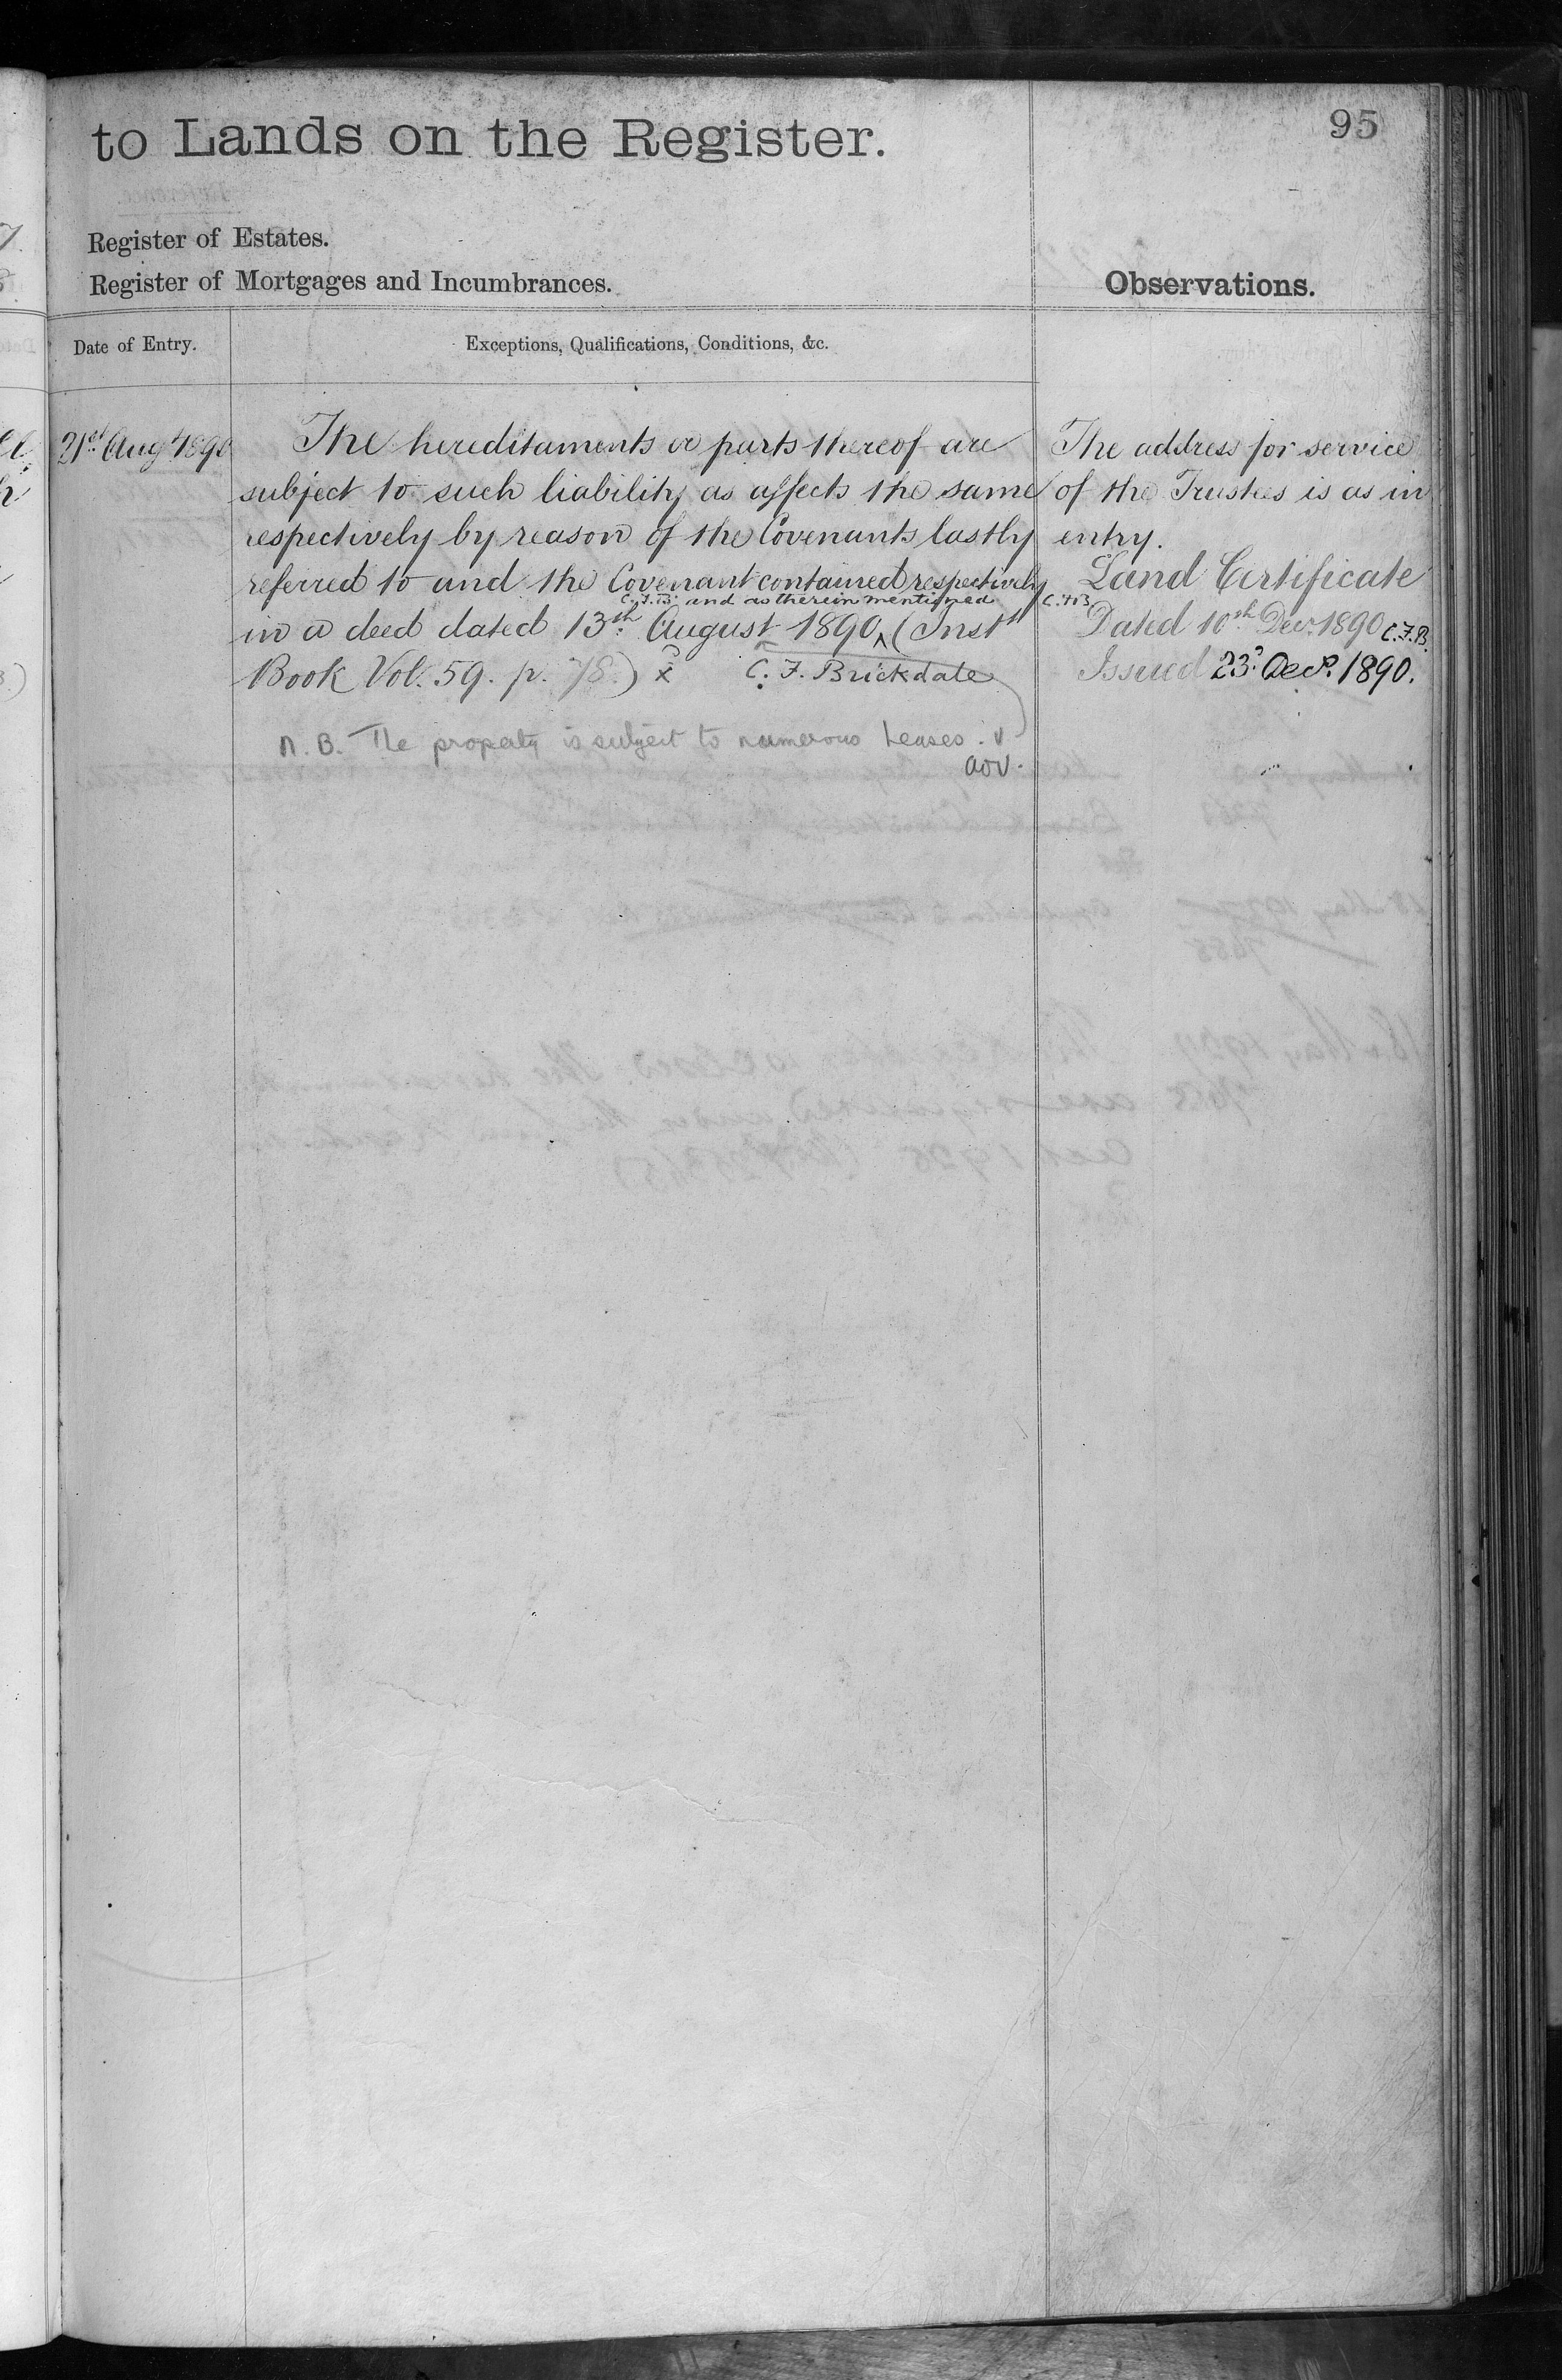 to Lands on the Register.
95
Register of Estates.
Register of Mortgages and Incumbrances.
Observations.
Date of Entry.
Exceptions, Qualifications, Conditions, &c.
21st Aug 1890
The hereditaments or parts thereof are
subject to such liability as affects the same
respectively by reason of the Covenants lastly
referred to and the Covenant contained respectively
C.F.B. and as therein mentioned C.F.B.
in a deed dated 13th August 1890 ^ (Instt
Book Vol. 59. p. 78.) x C. F. Brickdale
N.B. The property is subject to numerous Leases.
The address for service
of the Trustees is as in
entry.
Land Certificate
Dated 10th Decr. 1890 C.F.B.
Issued 23d. Decr. 1890.